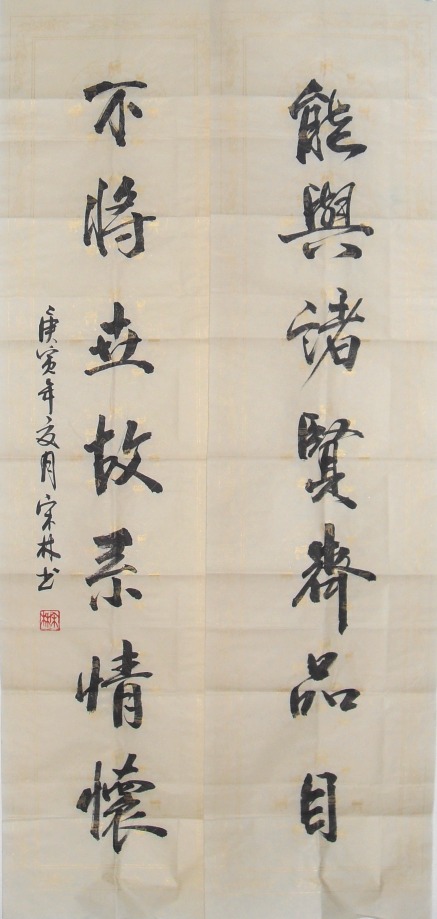 能與諸賢齊品目
不將世故系情懷
庚寅年夏月宋林书